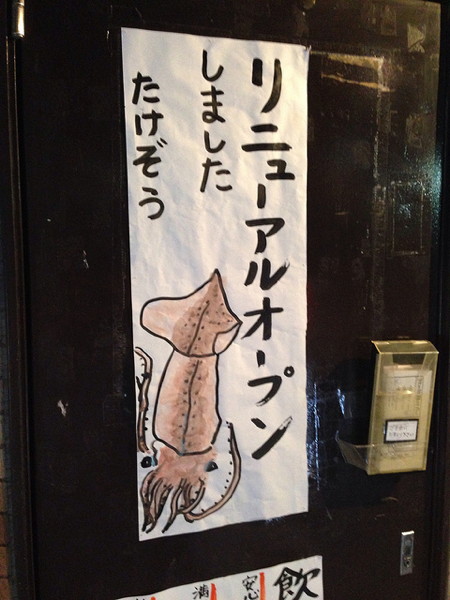 リニューアルオープン
しました
たけぞう
飲
安心
満